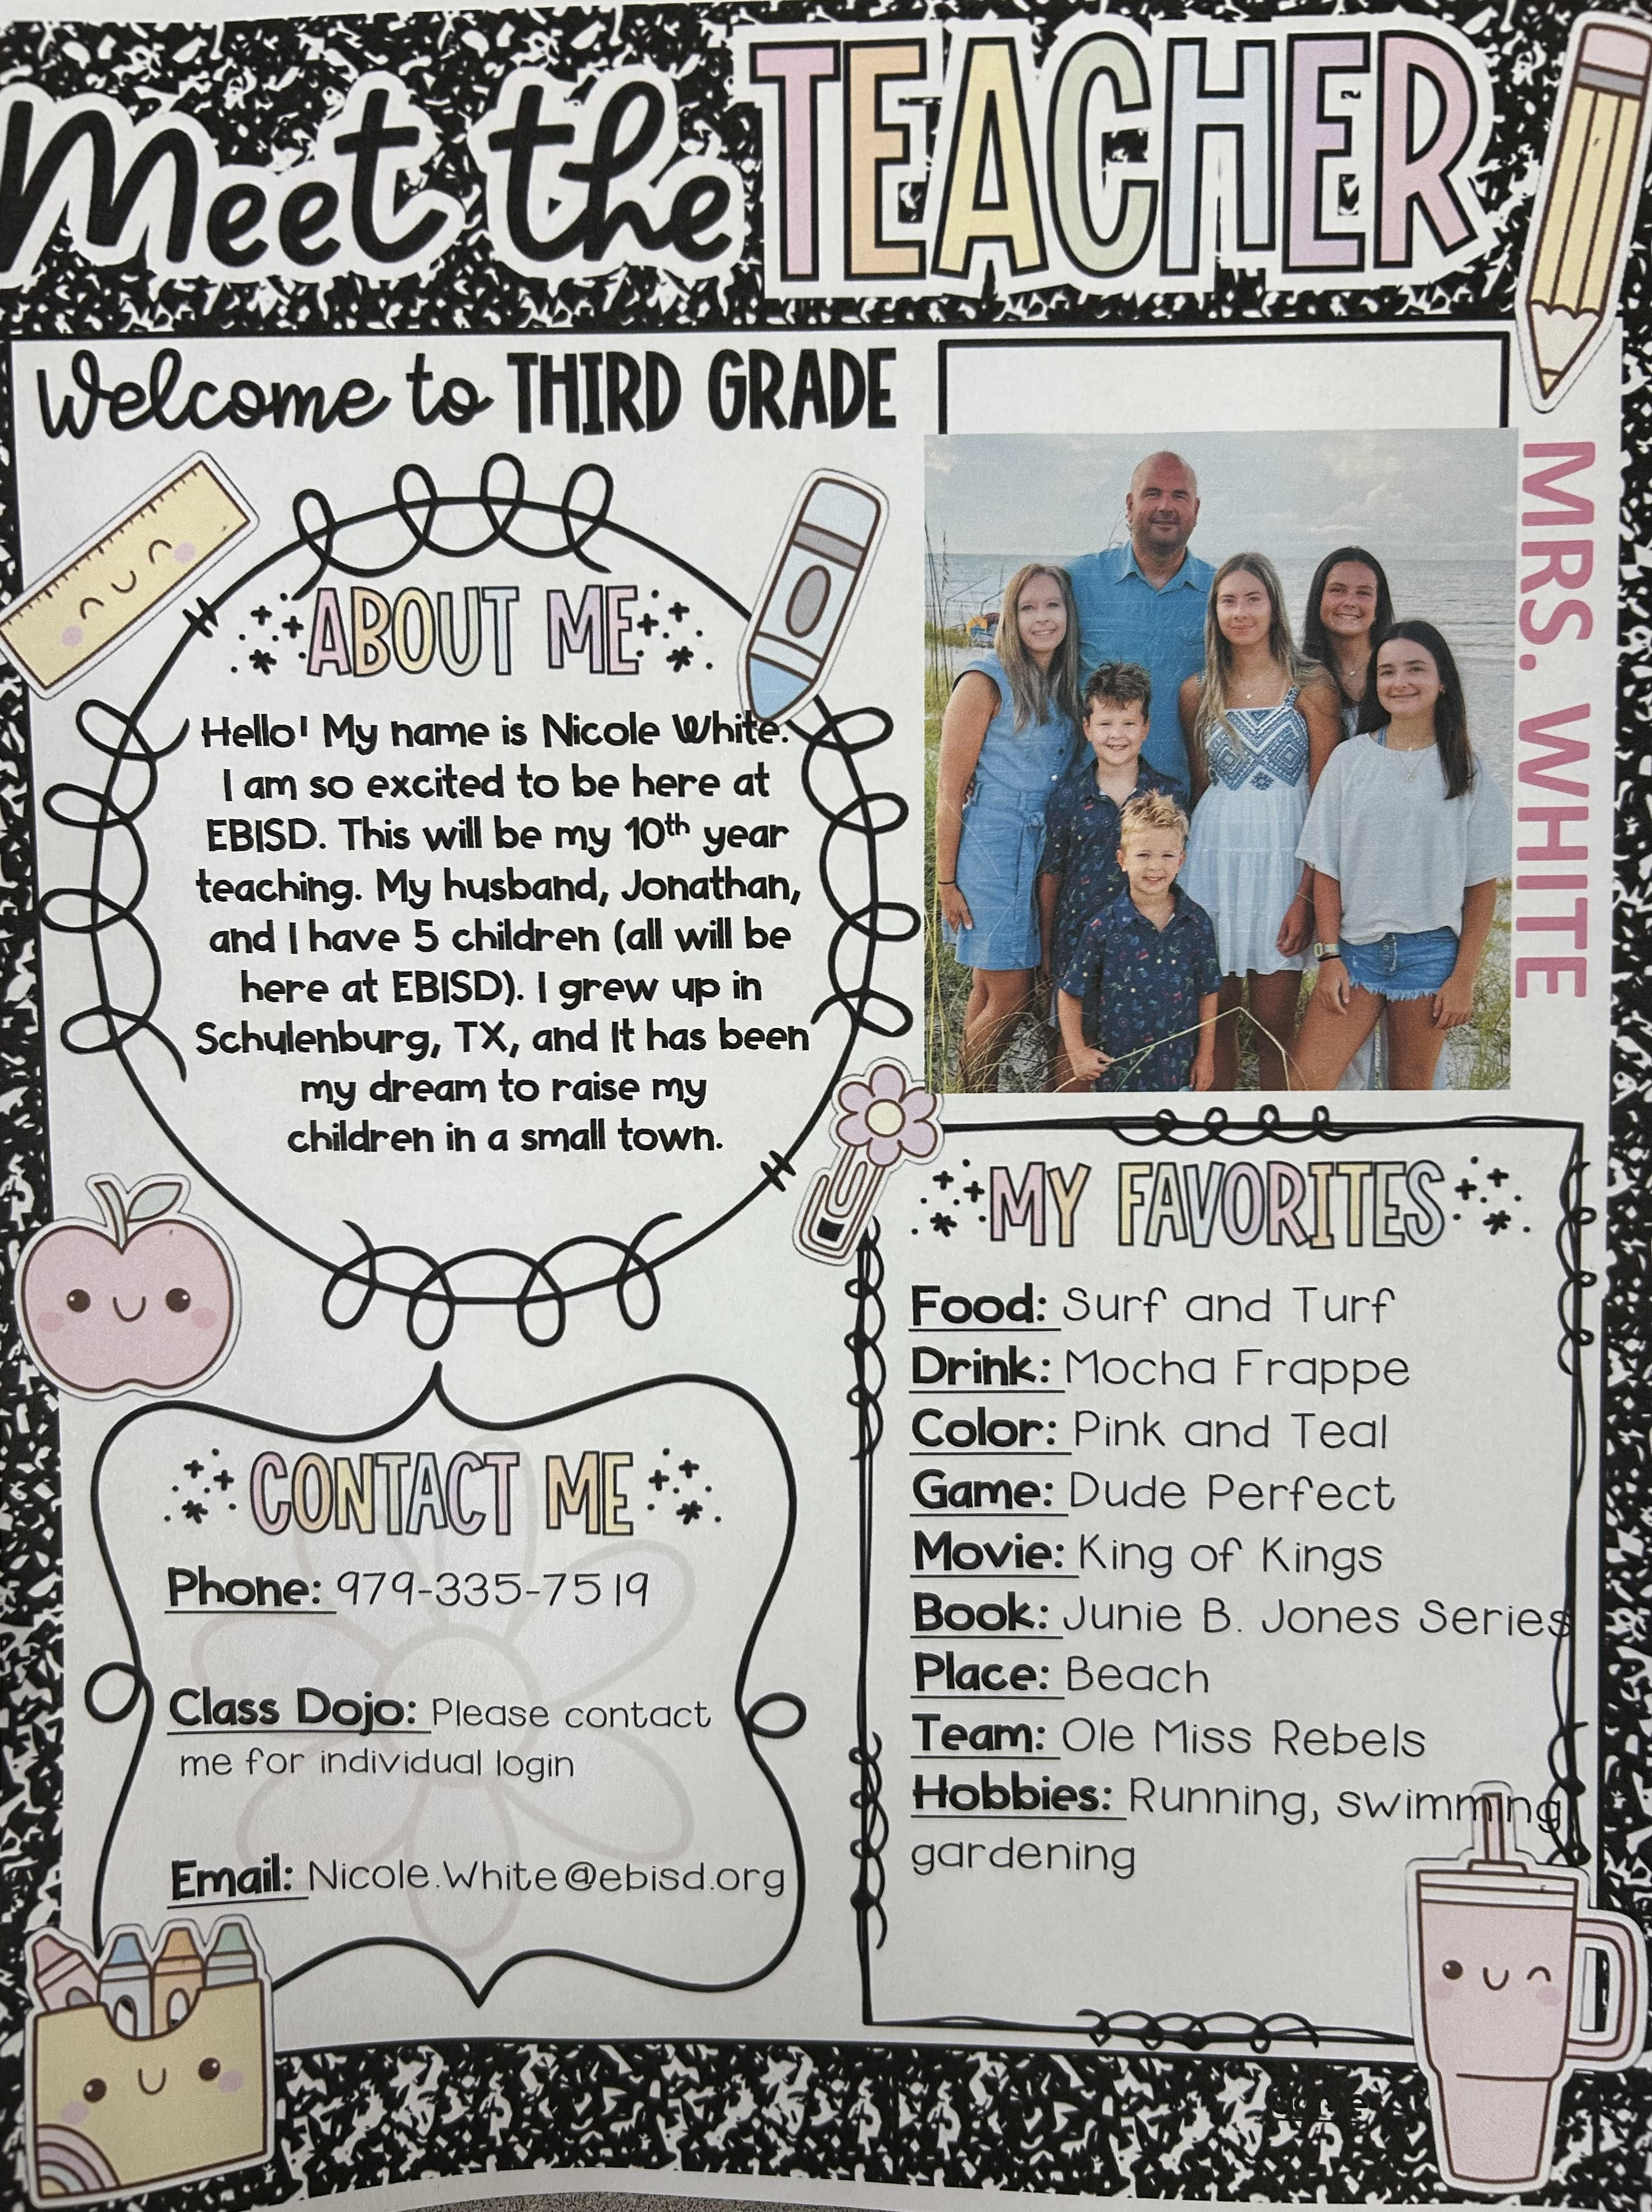 Meet the TEACHER
Welcome to THIRD GRADE
MRS. WHITE
ABOUT ME
Hello! My name is Nicole White.
I am so excited to be here at
EBISD. This will be my 10th year
teaching. My husband, Jonathan,
and I have 5 children (all will be
here at EBISD). I grew up in
Schulenburg, TX, and It has been
my dream to raise my
children in a small town.
CONTACT ME
Phone: 979-335-7519
Class Dojo: Please contact
me for individual login
Email: Nicole.White@ebisd.org
MY FAVORITES
Food: Surf and Turf
Drink: Mocha Frappe
Color: Pink and Teal
Game: Dude Perfect
Movie: King of Kings
Book: Junie B. Jones Series
Place: Beach
Team: Ole Miss Rebels
Hobbies: Running, swimming
gardening